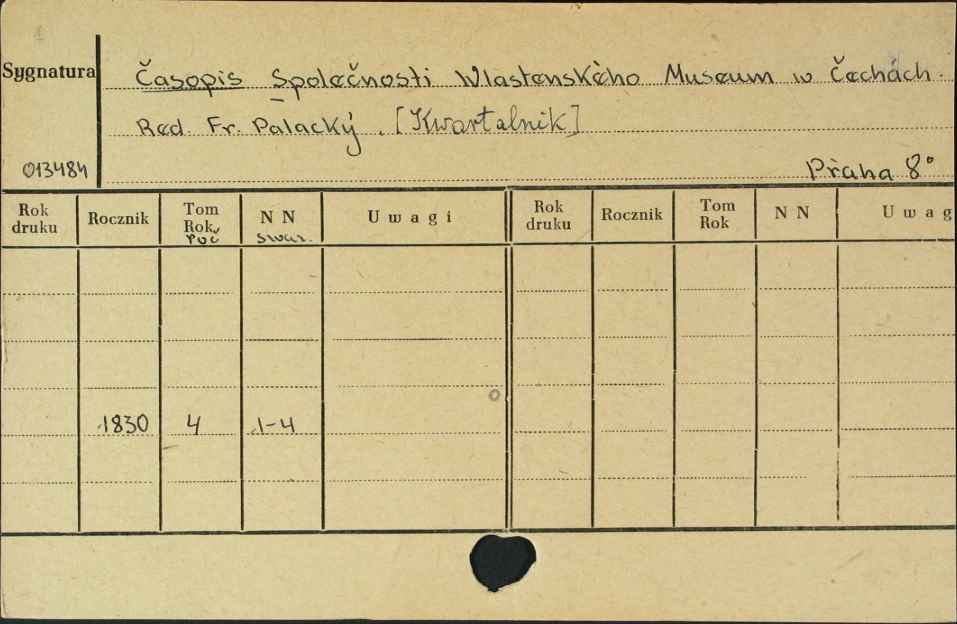 Sygnatura
Časopis Společnosti Wlastenského Museum w Čechách.
Red. Fr. Palacký. [Kwartalnik]
013484
Praha 8°
Rok druku Rocznik Tom Rok NN Uwagi Rok druku Rocznik Tom Rok NN Uwag
Poč swaz.
1830 4 1-4